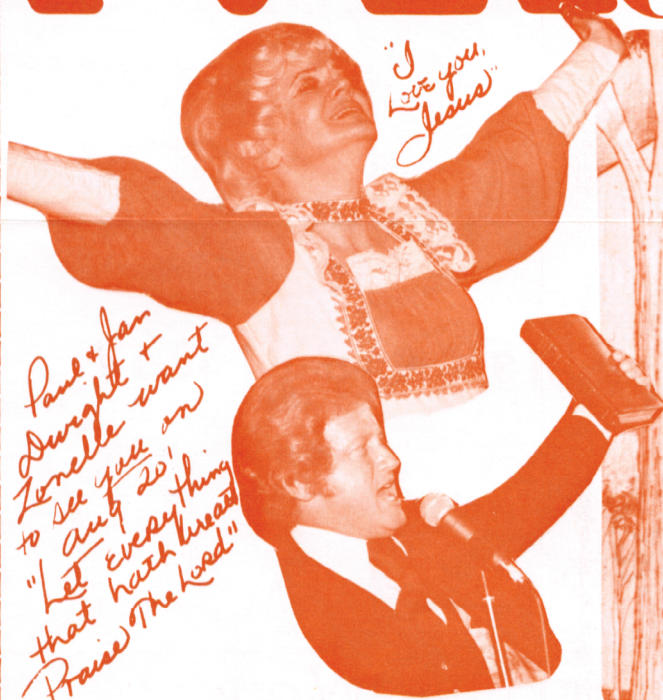 "I
Love you,
Jesus"
Paul + Jan
Dwight +
Zonelle want
to see you on
Aug 20!
"Let everything
that hath breath
Praise The Lord"